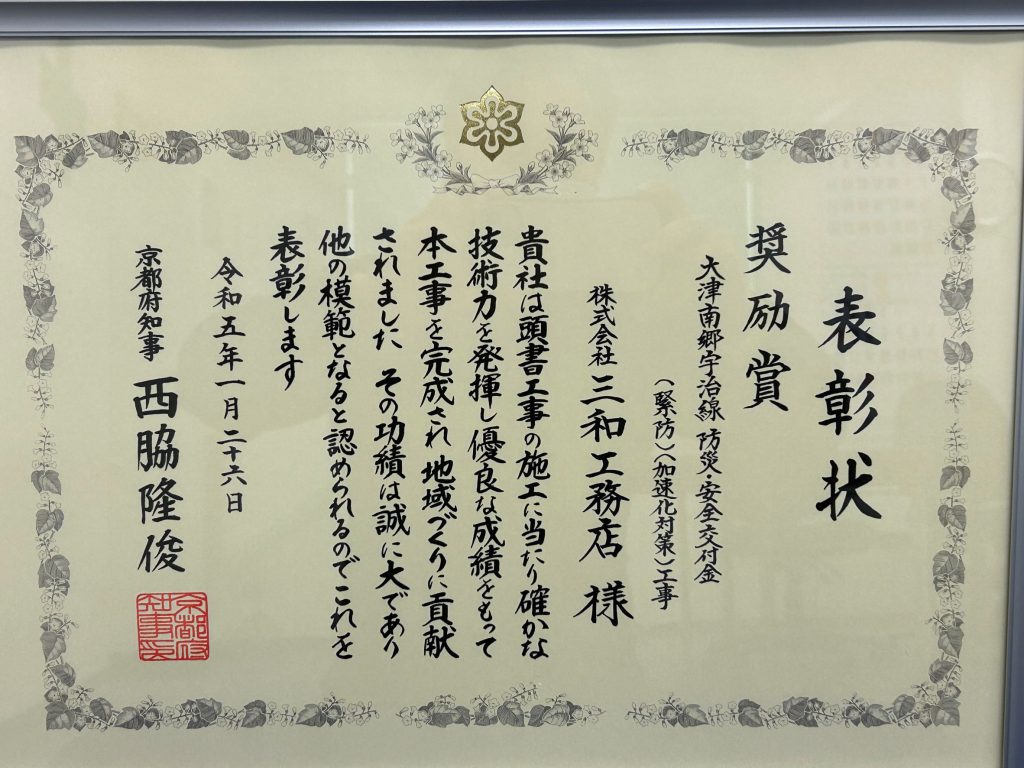 表彰状
奨励賞
大津南郷宇治線 防災・安全交付金
(緊防)(加速化対策)工事
株式会社 三和工務店 様
貴社は頭書工事の施工に当たり確かな
技術力を発揮し優良な成績をもって
本工事を完成され 地域づくりに貢献
されました その功績は誠に大であり
他の模範となると認められるので これを
表彰します
令和五年一月二十六日
京都府知事 西脇隆俊
京都府
知事印